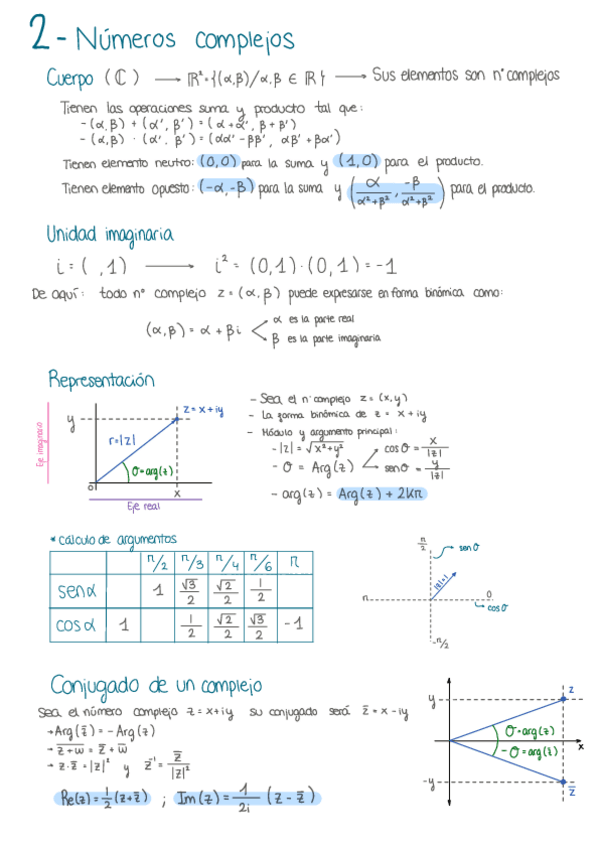 2 - Números complejos
Cuerpo (ℂ) → ℝ² = {(α,β)/α,β ∈ ℝ} → Sus elementos son nº complejos
Tienen las operaciones suma y producto tal que:
- (α,β) + (α', β') = (α+α', β+β')
- (α,β) · (α', β') = (αα' - ββ', αβ' + βα')
Tienen elemento neutro: (0,0) para la suma y (1,0) para el producto.
Tienen elemento opuesto: (-α,-β) para la suma y (α/(α²+β²), -β/(α²+β²)) para el producto.
Unidad imaginaria
i = ( ,1) → i² = (0,1)·(0,1) = -1
De aquí: todo nº complejo z = (α,β) puede expresarse en forma binómica como:
(α,β) = α + βi
α es la parte real
β es la parte imaginaria
Representación
Eje imaginario
y
z = x + iy
r = |z|
σ = arg(z)
0
x
Eje real
- Sea el nº complejo z = (x,y)
- La forma binómica de z = x + iy
- Módulo y argumento principal:
- |z| = √(x²+y²)
- σ = Arg(z)
cos σ = x/|z|
sen σ = y/|z|
- arg(z) = Arg(z) + 2kπ
* cálculo de argumentos
π/2 π/3 π/4 π/6 π
sen α 1 √3/2 √2/2 1/2
cos α 1 1/2 √2/2 √3/2 -1
π/2
sen σ
|z|=1
π
0
cos σ
-π/2
Conjugado de un complejo
Sea el número complejo z = x+iy su conjugado será z̄ = x - iy
→ Arg(z̄) = - Arg(z)
→ z̄+̄w̄ = z̄ + w̄
→ z·z̄ = |z|² y z⁻¹ = z̄/|z|²
Re(z) = 1/2 (z+z̄) ; Im(z) = 1/2i (z - z̄)
y
z
σ = arg(z)
x
-σ = arg(z)
-y
z̄